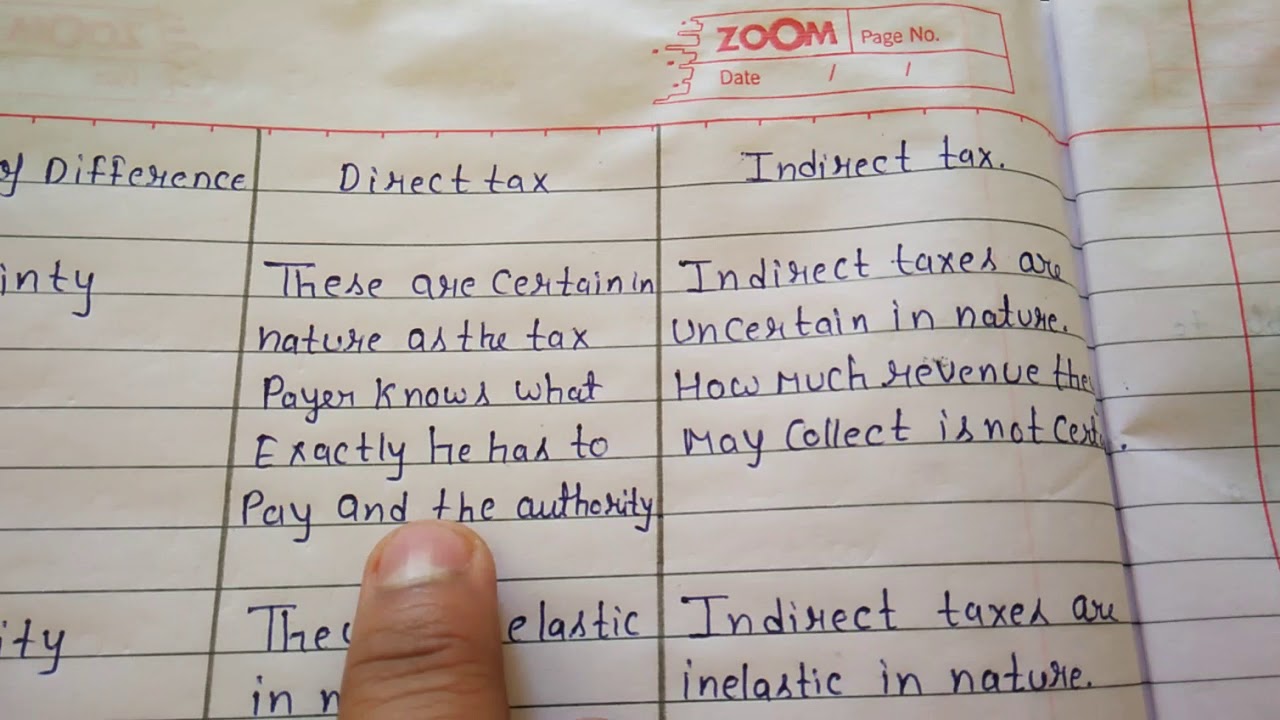 ZOOM Page No.
Date / /
Difference Direct tax Indirect tax.
These are certain in Indirect taxes are
nature as the tax uncertain in nature.
Payer Knows what How much revenue
Exactly he has to may Collect is not
Pay and the authority
elastic Indirect taxes are
in inelastic in nature.